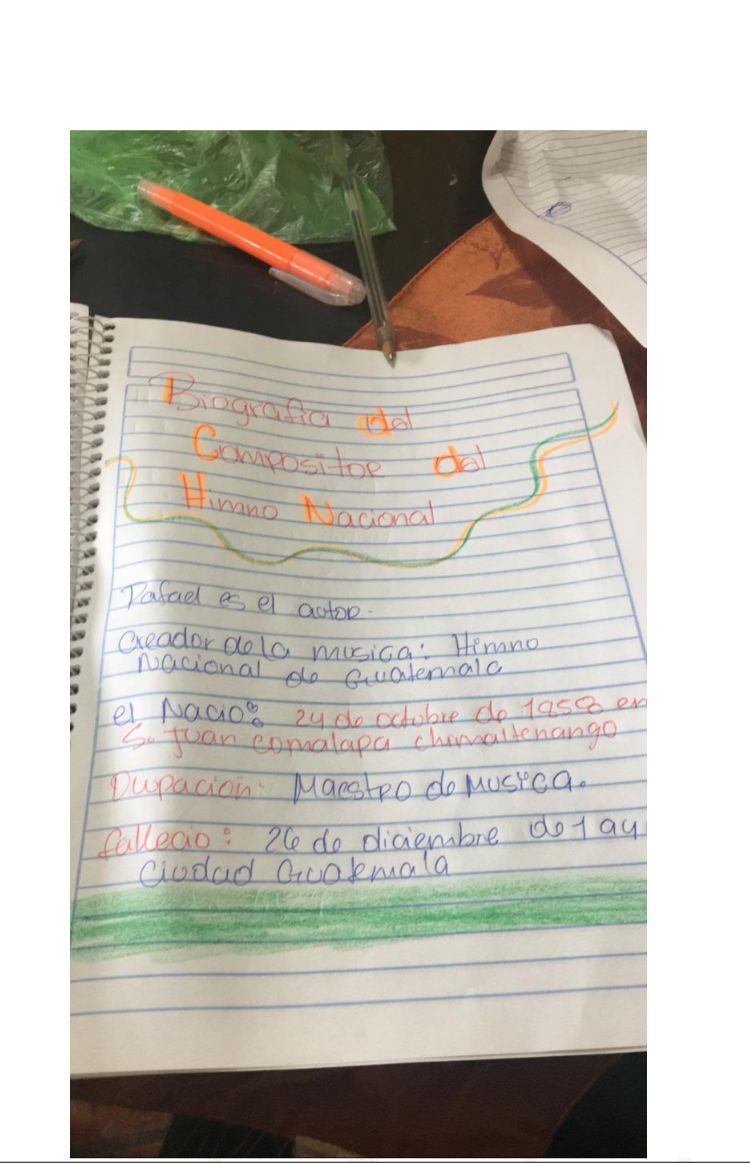 Biografia del
Compositor del
Himno Nacional
Rafael es el autor.
Creador de la musica: Himno
Nacional de Guatemala
el Nacio: 24 de octubre de 1858 en
S. Juan comalapa chimaltenango
Dupacion: Maestro de Musica.
fallecio: 26 de diciembre de 1 94
Ciudad Guatemala